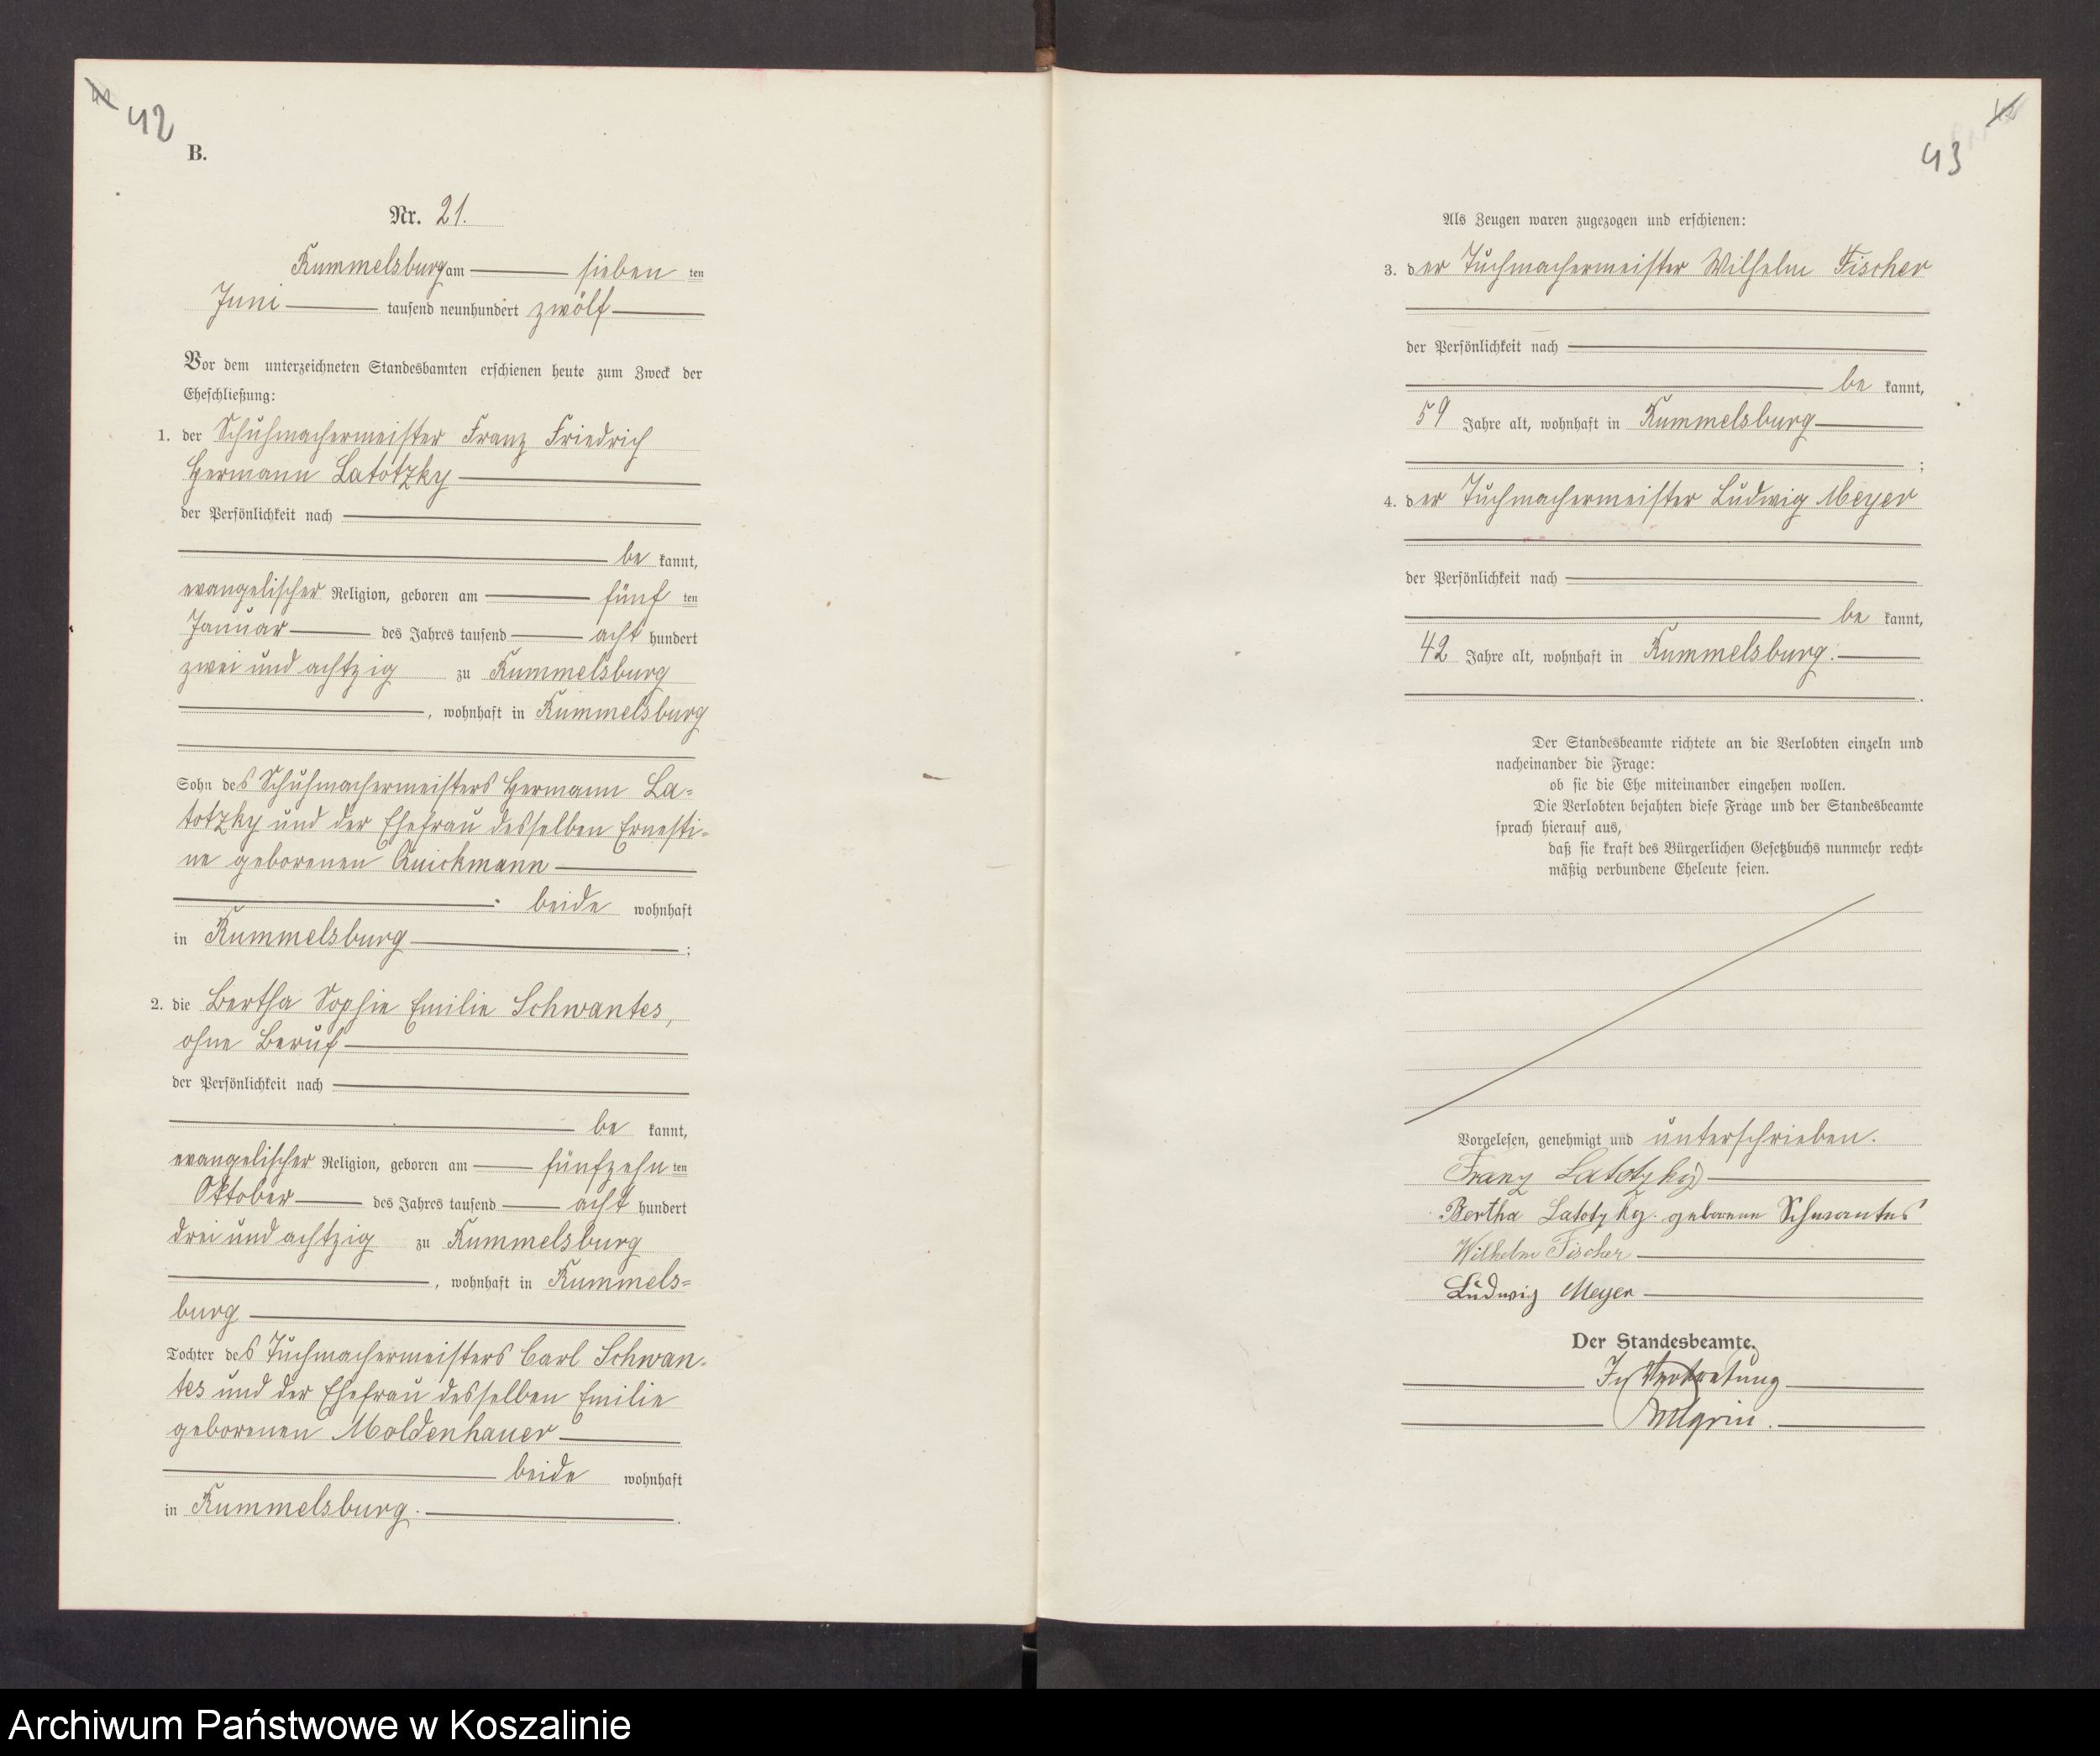 42
B.
Nr. 21.
Rummelsburg am sieben ten
Juni tausend neunhundert zwölf
Vor dem unterzeichneten Standesbamten erschienen heute zum Zweck der
Eheschließung:
1. der Schuhmachermeister Franz Friedrich
Hermann Latotzky
der Persönlichkeit nach
be kannt,
evangelischer Religion, geboren am fünf ten
Januar des Jahres tausend acht hundert
zwei und achtzig zu Rummelsburg
, wohnhaft in Rummelsburg
Sohn des Schuhmachermeisters Hermann La=
totzky und der Ehefrau desselben Ernesti=
ne geborenen Quickmann
beide wohnhaft
in Rummelsburg ;
2. die Bertha Sophie Emilie Schwantes,
ohne Beruf
der Persönlichkeit nach
be kannt,
evangelischer Religion, geboren am fünfzehn ten
Oktober des Jahres tausend acht hundert
drei und achtzig zu Rummelsburg
, wohnhaft in Rummels=
burg
Tochter des Tuchmachermeisters Carl Schwan-
tes und der Ehefrau desselben Emilie
geborenen Moldenhauer
beide wohnhaft
in Rummelsburg.
43
Als Zeugen waren zugezogen und erschienen:
3. der Tuchmachermeister Wilhelm Fischer
der Persönlichkeit nach
be kannt,
59 Jahre alt, wohnhaft in Rummelsburg
;
4. der Tuchmachermeister Ludwig Meyer
der Persönlichkeit nach
be kannt,
42 Jahre alt, wohnhaft in Rummelsburg.
Der Standesbeamte richtete an die Verlobten einzeln und
nacheinander die Frage:
ob sie die Ehe miteinander eingehen wollen.
Die Verlobten bejahten diese Frage und der Standesbeamte
sprach hierauf aus,
daß sie kraft des Bürgerlichen Gesetzbuchs nunmehr recht=
mäßig verbundene Eheleute seien.
Vorgelesen, genehmigt und unterschrieben.
Franz Latotzky
Bertha Latotzky. geborene Schwantes
Wilhelm Fischer
Ludwig Meyer
Der Standesbeamte.
In Vertretung
Archiwum Państwowe w Koszalinie